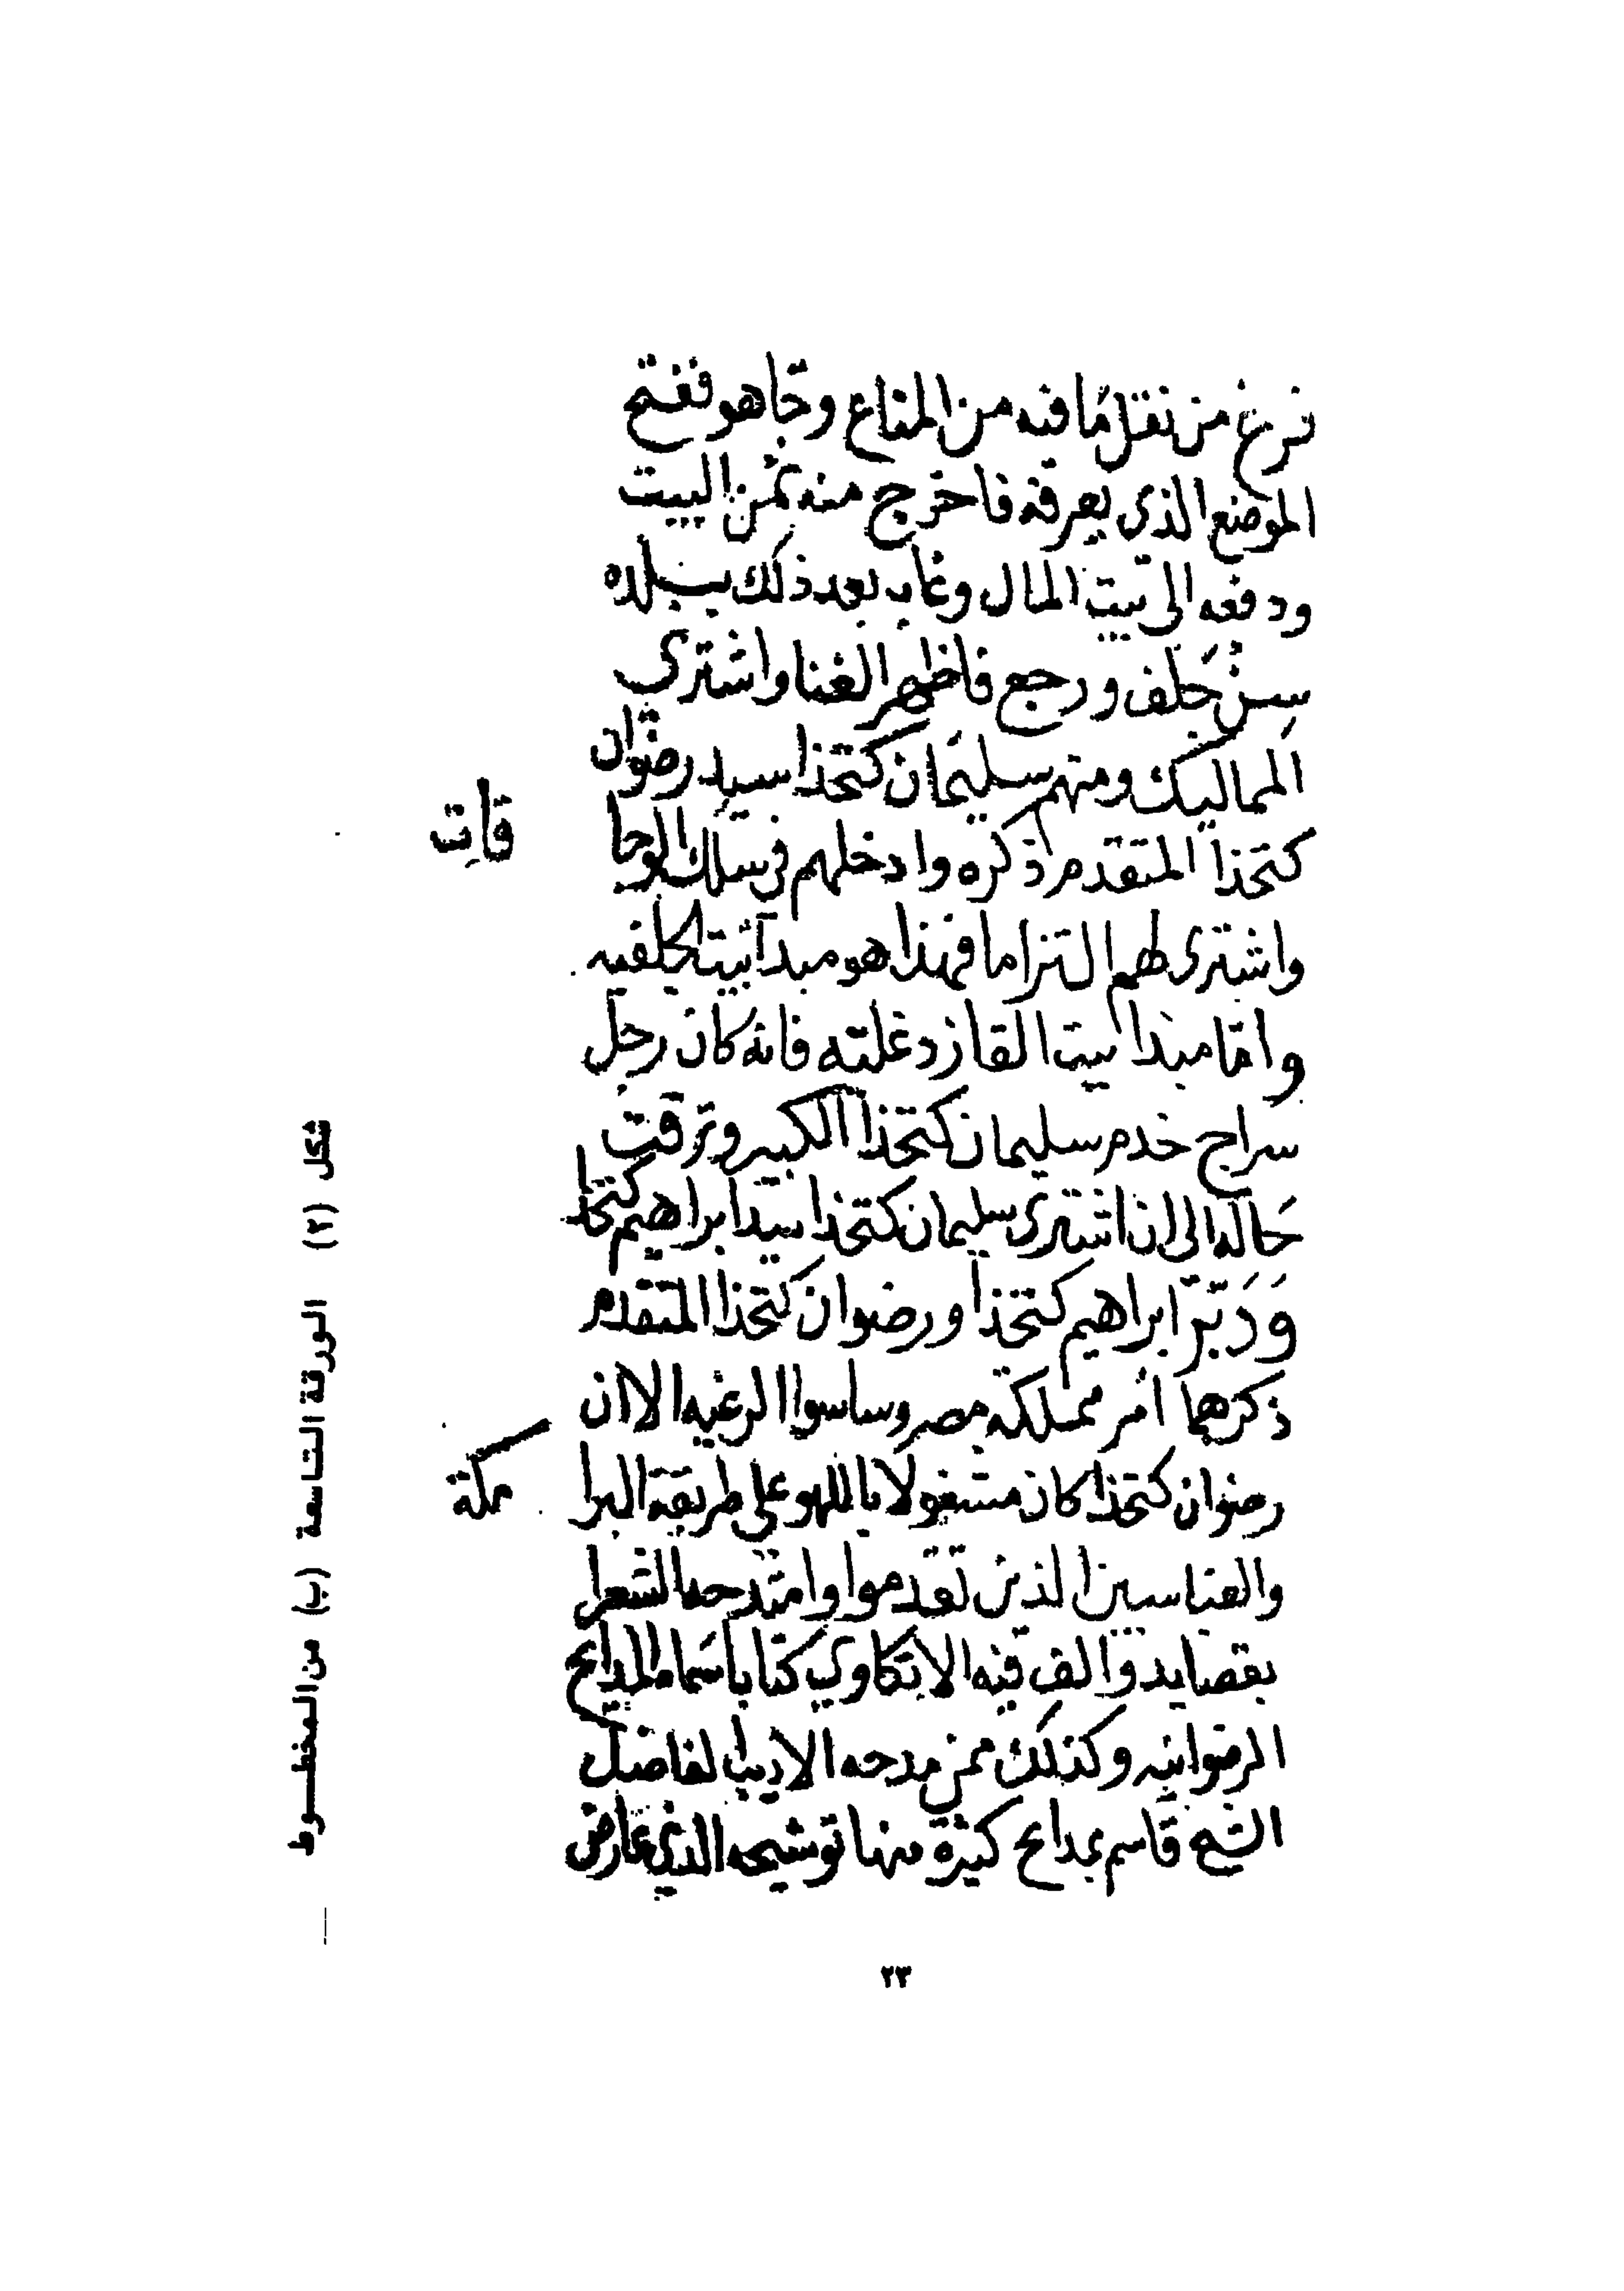 فرغ من نقل ما فيه من المتاع وجا هو ففتح
الموضع الذي يعرفه فاخرج منه ثمن البيت
ودفعه الى بيت المال وغاب بعد ذلك ببلده
سنجلف ورجع فاظهر الغنا واشترى
المماليك ومنهم سليمان كتخدا سيد رضوان
كتخدا المتقدم ذكره وادخلهم في سلك الوجا
قات
واشترى لهم التزاما فهذا هو مبدا بيت الجلفيه
واما مبدا بيت القازدغليه فانه كان رجل
سراج خدم سليمان كتخدا الكبير وترقت
حاله الى ان اشترى سليمان كتخدا سيد ابراهيم كتخدا
وَدَبّر ابراهيم كتخدا ورضوان كتخدا المتقدم
ذكرهما امر مملكة مصر وساسوا الرعيه الا ان
رضوان كتخدا كان مشغولا باللهو على طريقة البرا
مكة
والعباسيين الذين تقدموا وامتدحه الشعرا
بقصايد والف فيه الادكاوي كتابا سماه المدايح
الرضوانيه وكذلك ممن مدحه الاديب الفاضل
الشيخ قاسم بمدايح كثيرة منها توشيحه الذي عارض
شكل (٢) الورقة التاسعة (ب) من المخطوط
٢٣